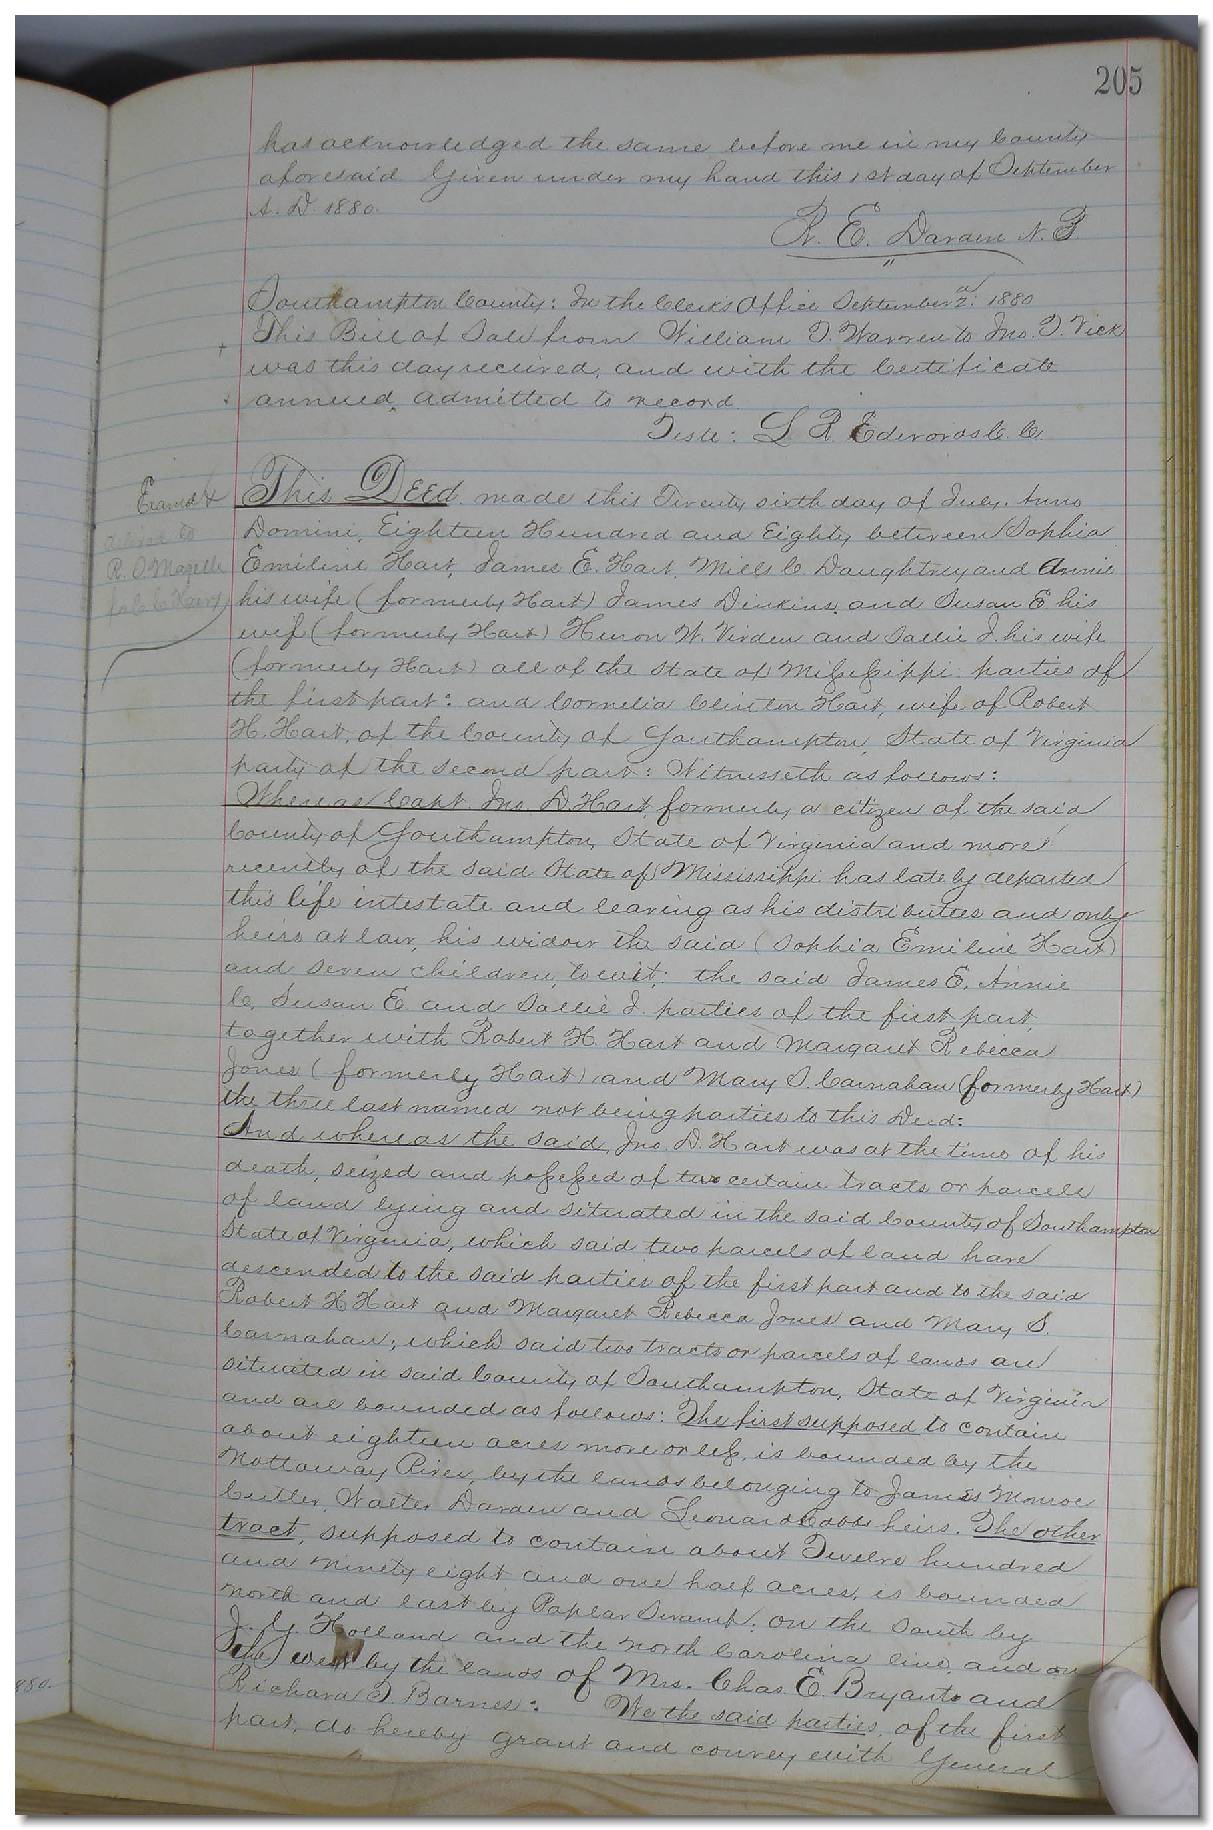 205
has acknowledged the same before me in my County
aforesaid Given under my hand this 1st day of September
A. D. 1880.
R. E. Darden N. P.
Southampton County: In the Clerk's Office September 2nd: 1880
This Bill of Sale from William T. Warren to Jno. T. Vick
was this day received, and with the Certificate
annexed, admitted to record
Teste: L. R. Edwards C. C.
Examd &
delivered to
R. O. Mazelle
for
This Deed made this Twenty sixth day of July, Anno
Domini, Eighteen Hundred and Eighty between Sophia
Emiline Hart, James E. Hart, Mills C. Daughtrey and Annie
his wife (formerly Hart) James Dinkins, and Susan E his
wife (formerly Hart) Huron W. Virden and Sallie J. his wife
(formerly Hart) all of the State of Mississippi parties of
the first part: and Cornelia Clinton Hart, wife of Robert
H. Hart, of the County of Southampton, State of Virginia
party of the second part: Witnesseth as follows:
Whereas Capt. Jno. D. Hart, formerly a citizen of the said
County of Southampton, State of Virginia and more
recently of the said State of Mississippi has lately departed
this life intestate and leaving as his distributees and only
heirs at law, his widow the said (Sophia Emiline Hart)
and seven children, to wit; the said James E, Annie
C, Susan E and Sallie J. parties of the first part,
together with Robert H Hart and Margaret Rebecca
Jones (formerly Hart) and Mary S. Carnahan (formerly Hart)
the three last named not being parties to this Deed:
And whereas the said, Jno. D. Hart was at the time of his
death, seized and possessed of two certain tracts or parcels
of land lying and situated in the said County of Southampton
State of Virginia, which said two parcels of land have
descended to the said parties of the first part and to the said
Robert H Hart and Margaret Rebecca Jones and Mary S.
Carnahan; which said two tracts or parcels of lands are
situated in said County of Southampton, State of Virginia
and are bounded as follows: The first supposed to contain
about eighteen acres more or less, is bounded by the
Nottoway River, by the lands belonging to James Monroe
Cutler, Walter Darden and Leonard Cobbs heirs. The other
tract, supposed to contain about Twelve hundred
and ninety eight and one half acres, is bounded
north and east by Poplar Swamp; on the South by
J. G. Holland and the North Carolina line, and on
the west by the lands of Mrs. Chas. E. Bryant and
Richard T. Barnes: We the said parties, of the first
part, do hereby grant and convey with General
880.